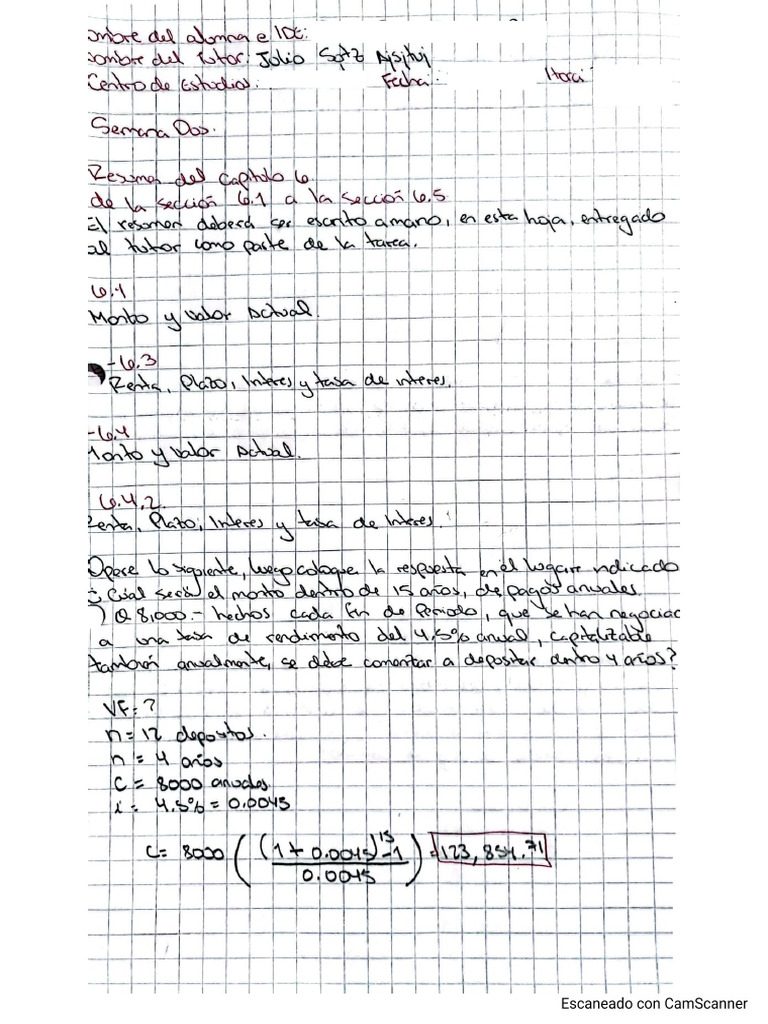 ombre del alumna e IDE:
ombre del tutor: Julio
Centro de Estudios. Fecha: Hora:
Semana Dos.
Resumen del Capitulo 6.
de la sección 6.1 a la sección 6.5
El resumen deberá ser escrito a mano, en esta hoja, entregado
al tutor como parte de la tarea.
6.1
Monto y valor Actual.
-6.3
Renta, Plazo, Interes y tasa de interes.
-6.4
Monto y valor Actual.
6.4.2.
Renta, Plazo, Interes y tasa de Interes.
Opere lo siguiente, luego coloque la respuesta en el lugar indicado
¿Cúal será el monto dentro de 15 años, de pagos anuales
) Q 8,000.- hechos cada fin de Periodo, que se han negociac
a una tasa de rendimiento del 4.5% anual, capitalizable
también anualmente, se debe comenzar a depositar dentro 4 años?
VF= ?
n= 12 depositos.
n = 4 años
C = 8000 anuales
i = 4.5% = 0.0045
C= 8000 ( (1 + 0.0045)^15 - 1 / 0.0045 ) = 123,854.71
Escaneado con CamScanner